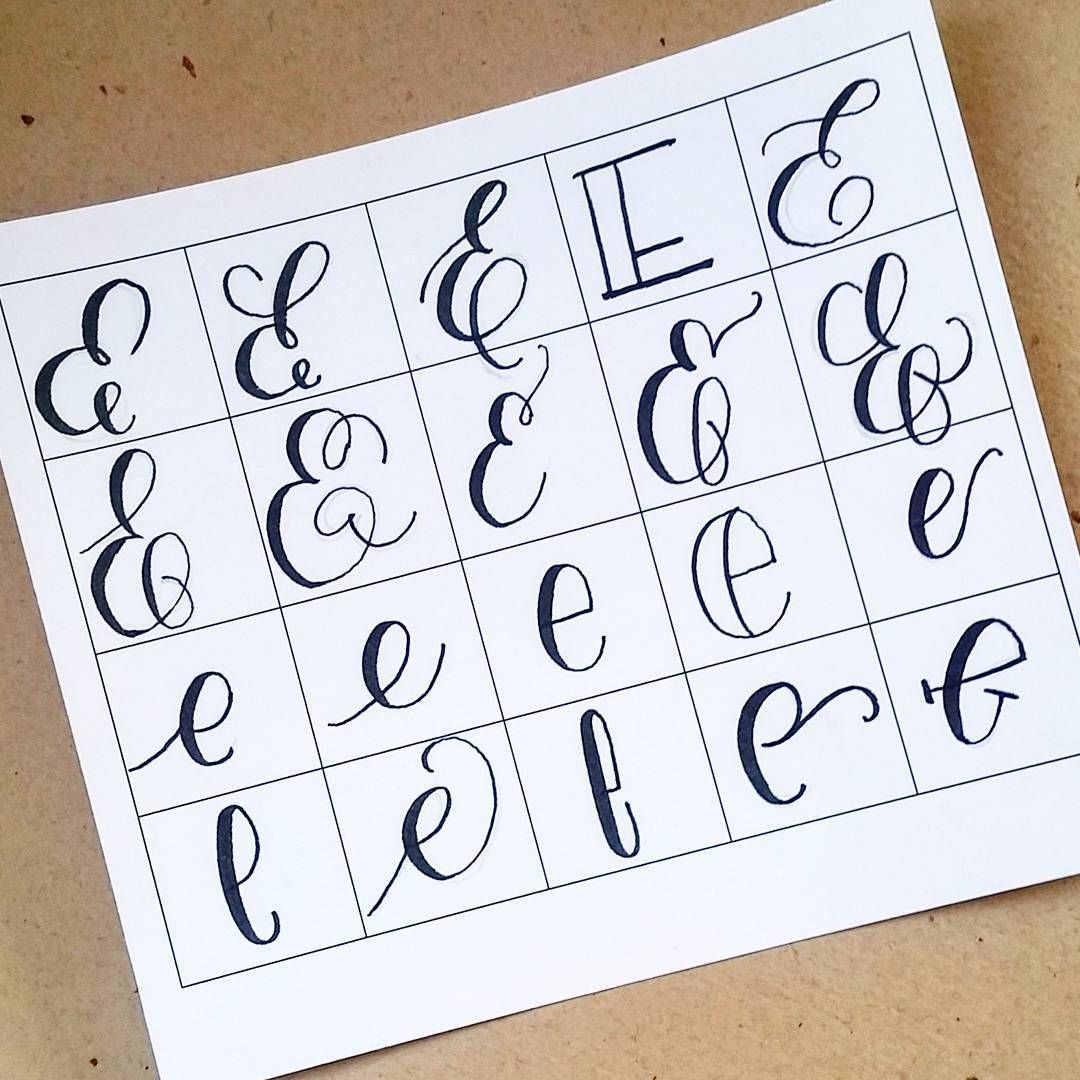 E E E E E
E E E E E
e e e e e
e e e e e